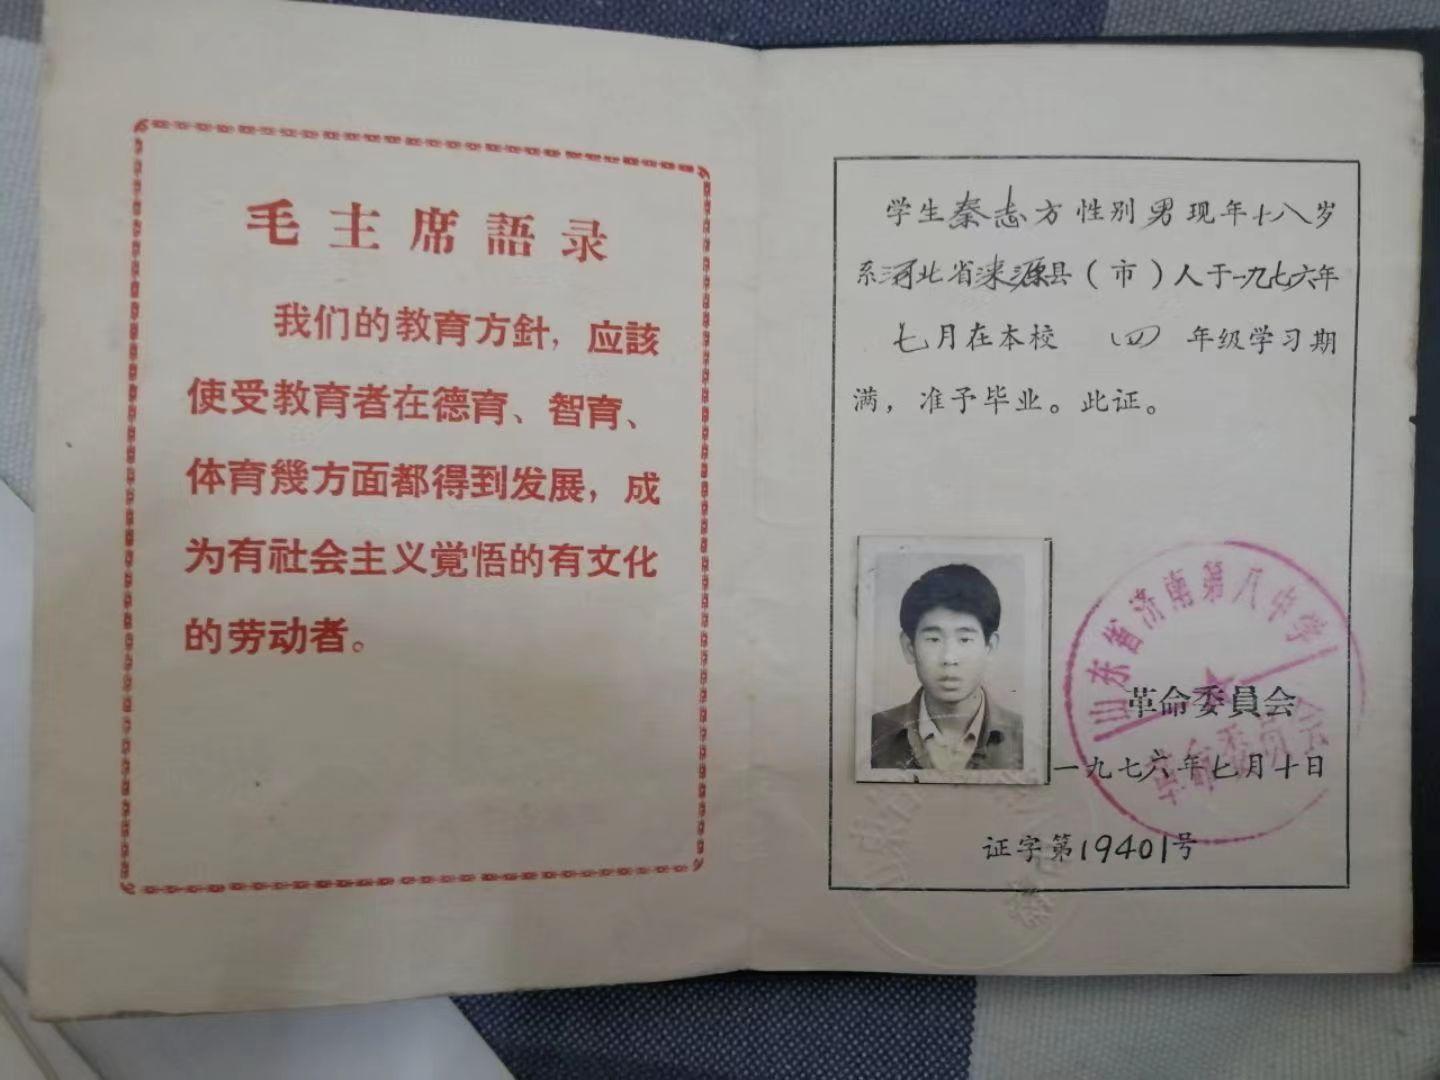 毛主席語录
我们的教育方針，应該
使受教育者在德育、智育、
体育幾方面都得到发展，成
为有社会主义覚悟的有文化
的劳动者。
学生秦志方性别男现年十八岁
系河北省涞源县（市）人于一九七六年
七月在本校 四 年级学习期
满，准予毕业。此证。
山东省济南第八中学
革命委员会
革命委員会
一九七六年七月十日
证字第19401号